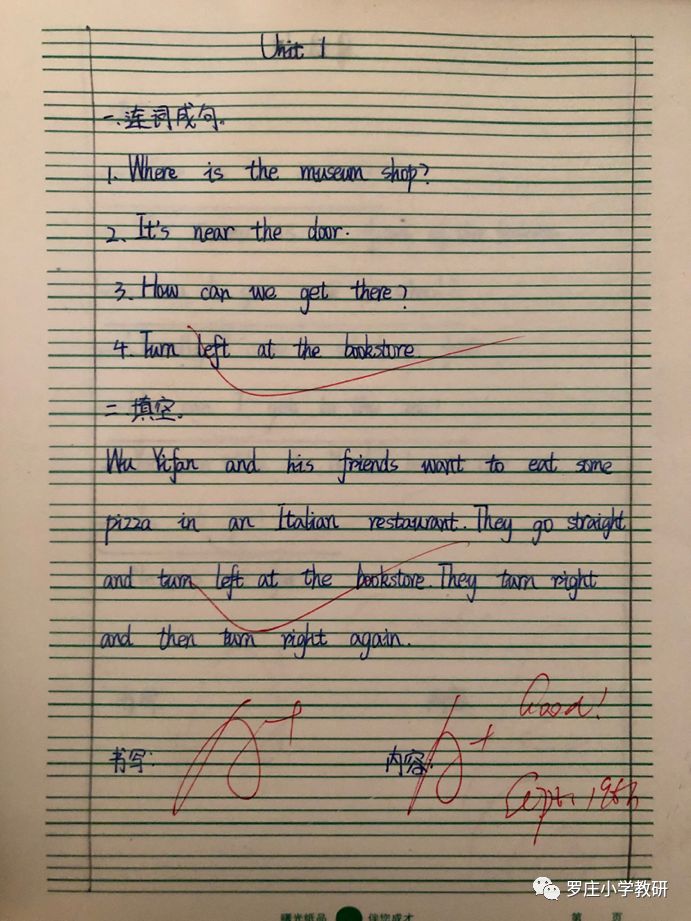 Unit 1
一.连词成句。
1. Where is the museum shop?
2. It's near the door.
3. How can we get there?
4. Turn left at the bookstore.
二.填空.
Wu Yifan and his friends want to eat some
pizza in an Italian restaurant. They go straight
and turn left at the bookstore. They turn right
and then turn right again.
Good!
书写:
内容:
罗庄小学教研
曙光纸品 伴您成才
第 页